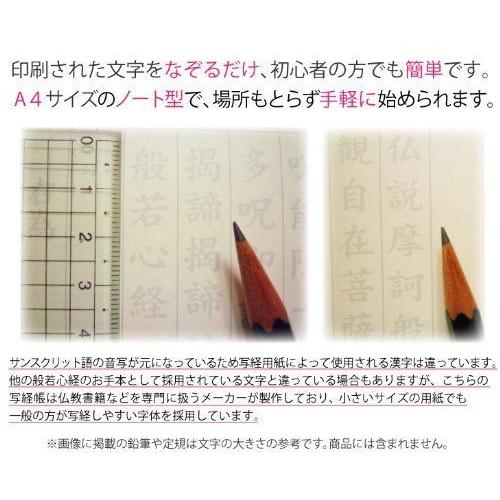 印刷された文字をなぞるだけ、初心者の方でも簡単です。
A4サイズのノート型で、場所もとらず手軽に始められます。
0
1
2
3
4
般若心経
掲諦掲諦
多呪
観自在菩薩
仏説摩訶般
サンスクリット語の音写が元になっているため写経用紙によって使用される漢字は違っています。
他の般若心経のお手本として採用されている文字と違っている場合もありますが、こちらの
写経帳は仏教書籍などを専門に扱うメーカーが製作しており、小さいサイズの用紙でも
一般の方が写経しやすい字体を採用しています。
※画像に掲載の鉛筆や定規は文字の大きさの参考です。商品には含まれません。